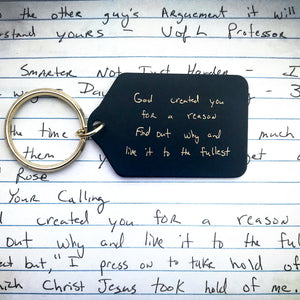 the other guy's Arguement it will
stand yours - UofL Professor
Smarter Not Just Harder - I
Day 3
the time much
them yo
Rose
Your Calling
God created you
for a reason
Find out why and
live it to the fullest
created you for a reason
out why and live it to the ful
eat but," I press on to take hold of
hich Christ Jesus took hold of me.